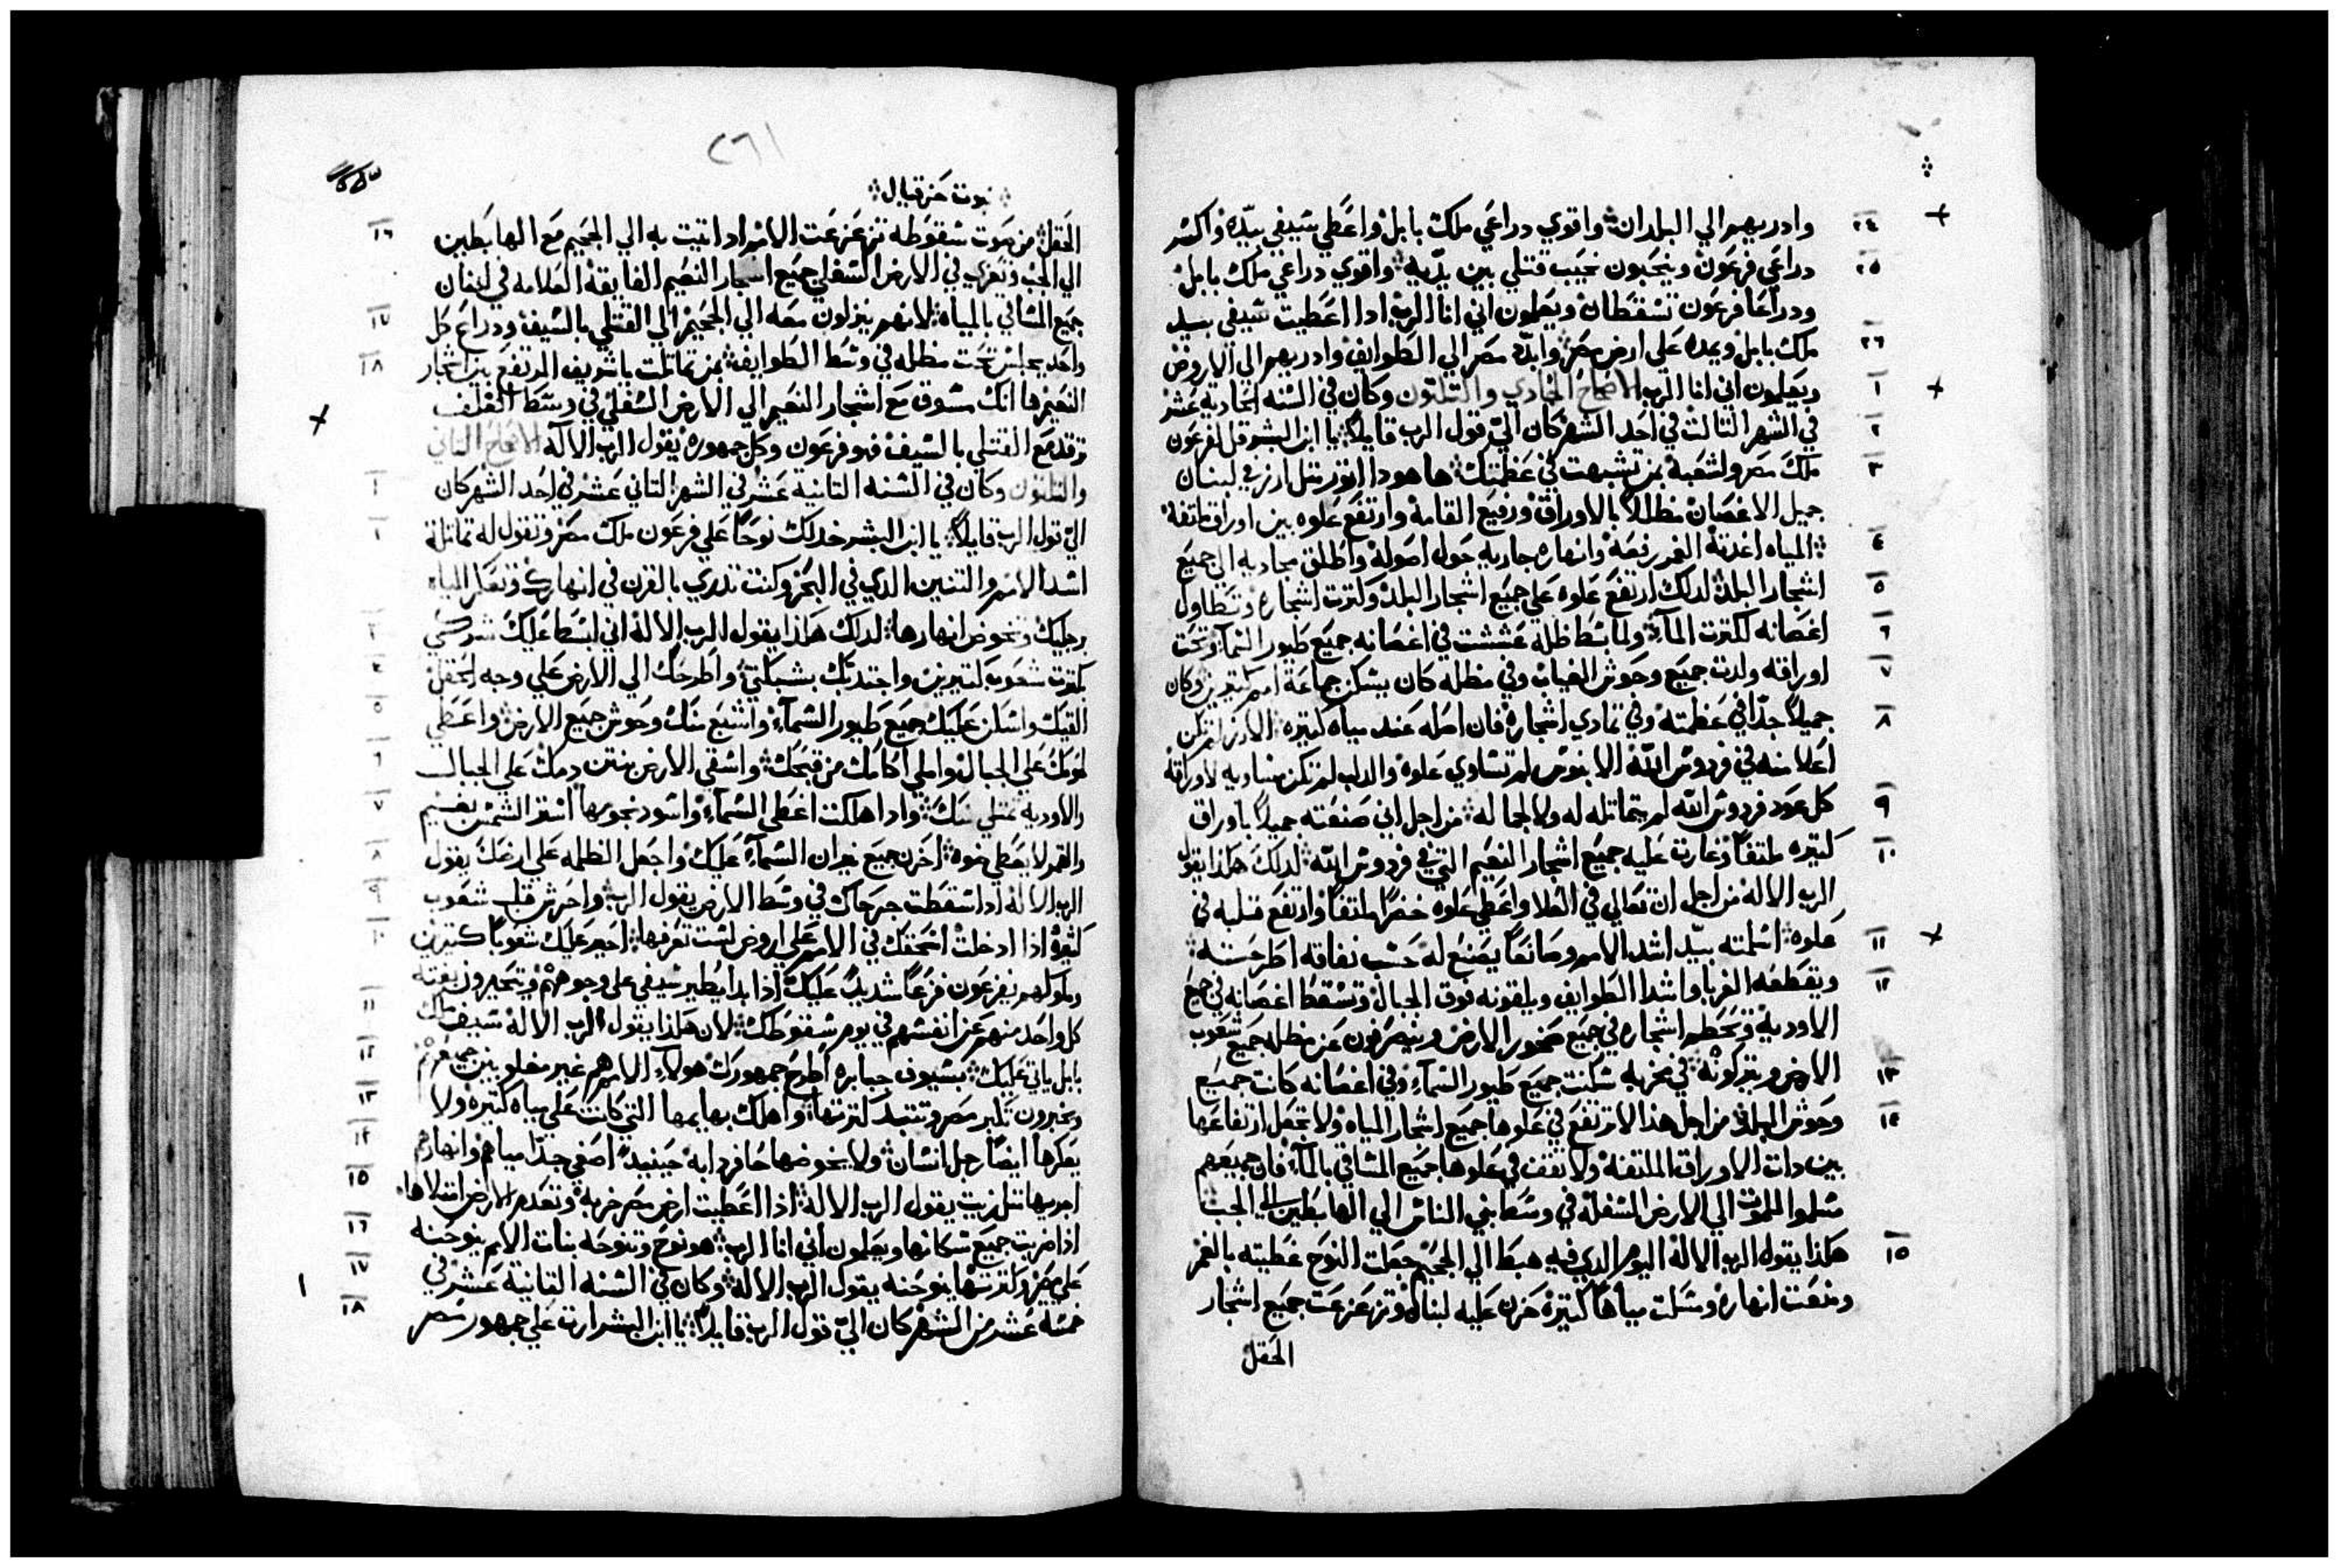 وادريهم الي البلدان واقوي دراعي ملك بابل واعطي سيفي بيده واكسر
٢٤
دراعي فرعون وينحبون نحيب قتلي بين يديه واقوي دراعي ملك بابل
٢٥
ودراعا فرعون تسقطان ويعلمون اني انا الرب ادا اعطيت سيفي بيد
ملك بابل ويمده علي ارض مصر وابدد مصر الي الطوايف وادريهم الي الاروض
٢٦
ويعلمون اني انا الرب الاصحاح الحادي والتلتون وكان في السنه الحادية عشر
١
في الشهر التالت في احد الشهر كان الي قول الرب قايلاً يا ابن البشر قل لفرعون
٢
ملك مصر ولشعبه بمن تشبهت في عظمتك ها هودا اتور متل ارز في لبنان
٣
جميل الاغصان مظللاً بالاوراق ورفيع القامه وارتفع علوه بين اوراق ملتفه
المياه اغدته الغمر رفعه وانهاره جاريه حول اصوله واطلق مجاريه الي جميع
٤
اشجار البلد لدلك ارتفع علوه علي جميع اشجار البلد وكترت اشجاره وتطاول
٥
اغصانه لكترت المآء ولما بسط ظله عششت في اغصانه جميع طيور السمآء وتحت
٦
اوراقه ولدت جميع وحوش الغياض وفي مظله كان يسكن جماعة امم كتيرين وكان
٧
جميلاً جداً في عظمته وفي تمادي اشجاره فان اصله عند مياه كتيره الارز لم تكن
٨
اعلا منه في فردوس الله الابنوس لم تساوي علوه والدلب لم تكن مساويه لاوراقه
كل عود فردوس الله لم يتماتله له ولا لجماله من اجل اني صنعته جميلاً باوراق
٩
كتيره ملتفاً وغارت عليه جميع اشجار النعيم التي في فردوس الله لدلك هكدا يقول
١٠
الرب الاله من اجل ان تعالي في العلا واعطي علوه خضراً ملتفاً وارتفع قلبه في
علوه اسلمته بيد اشد الامم وصانعاً يصنع له حسب نفاقه اطرحته
١١
ويقطعه الغربا واشدا الطوايف ويلقونه فوق الجبال وتسقط اغصانه في جميع
١٢
الاوديه وتحطم اشجاره في جميع صخور الارض وينصرفون عن مظله جميع شعوب
الارض ويتركونه في مخربه سكنت جميع طيور السمآء وفي اغصانه كانت جميع
١٣
وحوش البلد من اجل هدا لا ترتفع في علوها جميع اشجار المياه ولا تجعل ارتفاعها
١٤
بين دات الاوراق الملتفه ولا تقف في علوها جميع المساقي بالمآء فان جميعهم
سلموا للموت الي الارض السفله في وسط بني الناس الي الهابطين الي الجب
هكدا يقول الرب الاله اليوم الدي فيه هبط الي الجحيم جعلت النوح غطيته بالغمر
١٥
ومنعت انهاره ومسكت مياهاً كتيره حزن عليه لبنان وتزعزعت جميع اشجار
الحقل
٢٦١
نبوت حزقيال
الحقل من صوت سقوطه تزعزعت الامم اد اتيت به الي الجحيم مع الهابطين
١٦
الي الجب وتعزي في الارض السفلي جميع اشجار النعيم الفايقه العلامه في لبنان
جميع المساقي بالمياه لانهم ينزلون معه الي الجحيم الي القتلي بالسيف ودراع كل
١٧
واحد يجلس تحت مظله في وسط الطوايف بمن تماتلت ياشريف المرتفع بين اشجار
١٨
النعيم ها انك مسوق مع اشجار النعيم الي الارض السفلي في وسط الغلف
ترقد مع القتلي بالسيف هو فرعون وكل جمهوره يقول الرب الاله الاصحاح التاني
والتلتون وكان في السنه التانية عشر في الشهر التاني عشر في احد الشهر كان
١
الي قول الرب قايلاً يا ابن البشر خد لك نوحاً علي فرعون ملك مصر وتقول له تماتلة
اسد الامم والتنين الدي في البحر وكنت تدري بالقرن في انهارك وتعكر المياه
رجليك وتخوض انهارها لدلك هكدا يقول الرب الاله اني ابسط عليك شبكتي
٣
بكترت شعوب كتيرين واجتدبك بشبكتي واطرحك الي الارض علي وجه الحقل
٤
القيك واسكن عليك جميع طيور السمآء واشبع منك وحوش جميع الارض واعطي
٥
لحومك علي الجبال واملي اكامك من قبحك واسقي الارض بنتن دمك علي الجبال
٦
والاوديه تمتلي منك وادا هلكت اغطي السمآء واسود نجومها استر الشمس بغيم
٧
والقمر لا يعطي ضوه احزن جميع نيران السمآء عليك واجعل الظلمه علي ارضك يقول
٨
الرب الاله ادا سقطت جرحاك في وسط الارض يقول الرب واحرش قلب شعوب
٩
كثيره اذا ادخلت انسحقك في الامم علي اروض لست تعرفها احير عليك شعوباً كتيرين
١٠
وملوكهم يفزعون فزعاً شديداً عليك اذا بدا يطير سيفي علي وجوههم ويتحيرون بغتة
كل واحد منهم عن انفسهم في يوم سقوطك لان هكذا يقول الرب الاله سيف ملك
١١
بابل ياتي عليك بسيوف جبابره اطرح جمهورك هولآء الامم هم غير مغلوبين جميعهم
١٢
ويخبرون تكبر مصر وتتبدد كترتها واهلك بهايمها التي كانت علي مياه كتيره ولا
١٣
يعكرها ايضاً رجل انسان ولا يخوضها حافر دابه حينيد اصفي جداً مياههم وانهارهم
١٤
اجريها متل زيت يقول الرب الاله اذا اعطيت ارض مصر خربه وتعدم الارض امتلاها
١٥
اذا ضربت جميع سكانها ويعلمون اني انا الرب هو نوح وتنوحه بنات الامم ينوحنه
١٦
علي مصر وكترتها ينوحنه يقول الرب الاله وكان في السنه التانية عشر في
١٧
خمسة عشر من الشهر كان الي قول الرب قايلاً يا ابن البشر ارت علي جمهور مصر
١٨